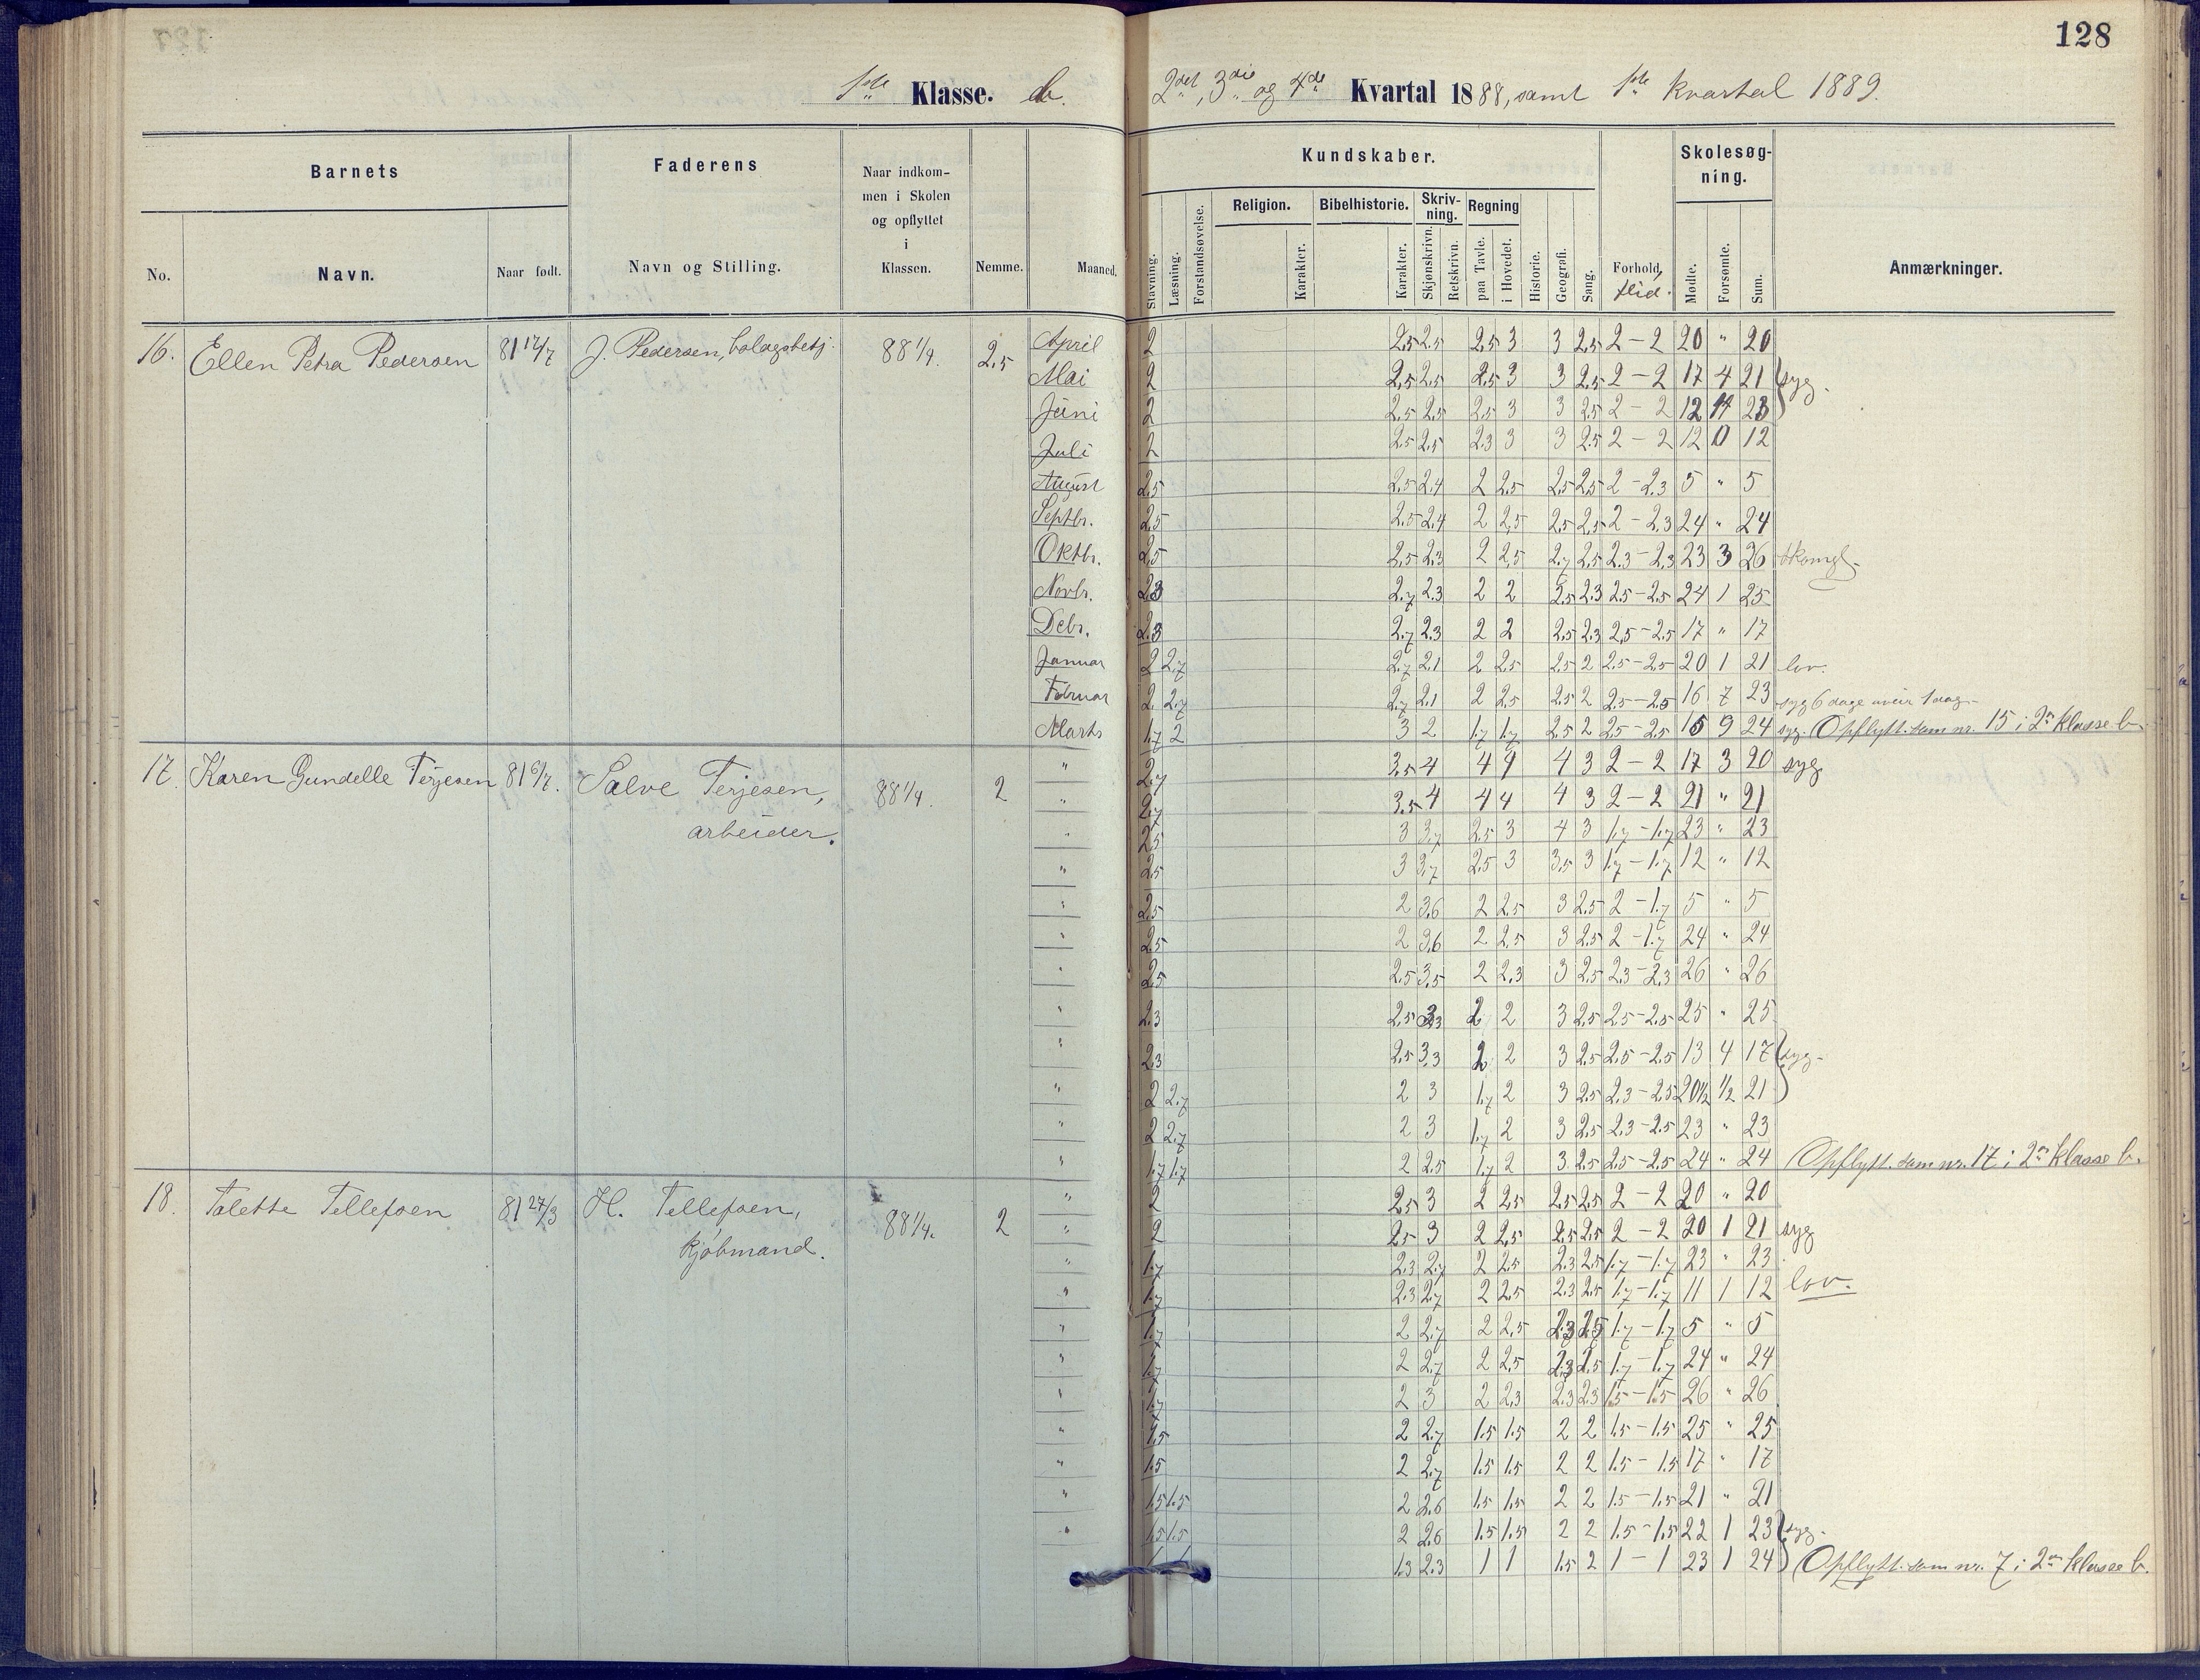 128
1ste Klasse. b.
2det, 3die og 4de Kvartal 1888, samt 1ste kvartal 1889.
Barnets
Faderens
Naar indkom-
men i Skolen
og opflyttet
i
Klassen.
No.
Navn.
Naar født.
Navn og Stilling.
Nemme.
Maaned.
Kundskaber.
Skolesøg-
ning.
Religion.
Bibelhistorie.
Skriv-
ning.
Regning
Stavning.
Læsning.
Forstandsøvelse.
Karakter.
Karakter.
Skjønskrivn.
Retskrivn.
paa Tavle.
i Hovedet.
Historie.
Geografi.
Sang.
Forhold,
flid.
Mødte.
Forsømte.
Sum.
Anmærkninger.
16. Ellen Petra Pedersen 81 17/7 J. Pedersen, 88 1/4. 2,5
April 2 2,5 2,5 2,5 3 3 2,5 2 - 2 20 " 20
Mai 2 2,5 2,5 2,5 3 3 2,5 2 - 2 17 4 21 syg.
Juni 2 2,5 2,5 2,5 3 3 2,5 2 - 2 12 11 23
Juli 2 2,5 2,5 2,3 3 3 2,5 2 - 2 12 0 12
August 2,5 2,5 2,4 2 2,5 2,5 2,5 2 - 2,3 5 " 5
Septbr. 2,5 2,5 2,4 2 2,5 2,5 2,5 2 - 2,3 24 " 24
Oktbr. 2,5 2,5 2,3 2 2,5 2,7 2,5 2,3 - 2,3 23 3 26
Novbr. 2,3 2,7 2,3 2 2 2,5 2,3 2,5 - 2,5 24 1 25
Debr. 2,3 2,7 2,3 2 2 2,5 2,3 2,5 - 2,5 17 " 17
Januar 2 2,7 2,7 2,1 2 2,5 2,5 2 2,5 - 2,5 20 1 21 lov.
Februar 2 2,7 2,7 2,1 2 2,5 2,5 2 2,5 - 2,5 16 7 23 syg 6 dage uveir 1 dag.
Marts 1,7 2 3 2 1,7 1,7 2,5 2 2,5 - 2,5 15 9 24 syg. Opflytt. som nr. 15 i 2n klasse b.
17. Karen Gundelle Terjesen 81 6/7. Salve Terjesen, 88 1/4. 2
arbeider.
" 2,7 3,5 4 4 4 4 3 2 - 2 17 3 20 syg
" 2,7 3,5 4 4 4 4 3 2 - 2 21 " 21
" 2,5 3 3,7 2,5 3 4 3 1,7 - 1,7 23 " 23
" 2,5 3 3,7 2,5 3 3,5 3 1,7 - 1,7 12 " 12
" 2,5 2 3,6 2 2,5 3 2,5 2 - 1,7 5 " 5
" 2,5 2 3,6 2 2,5 3 2,5 2 - 1,7 24 " 24
" 2,5 2,5 3,5 2 2,3 3 2,5 2,3 - 2,3 26 " 26
" 2,3 2,5 3,3 2 2 3 2,5 2,5 - 2,5 25 " 25
" 2,3 2,5 3,3 2 2 3 2,5 2,5 - 2,5 13 4 17 syg.
" 2 2,7 2 3 1,7 2 3 2,5 2,3 - 2,5 20 1/2 1/2 21
" 2 2,7 2 3 1,7 2 3 2,5 2,3 - 2,5 23 " 23
" 1,7 1,7 2 2,5 1,7 2 3 2,5 2,5 - 2,5 24 " 24 Opflytt. som nr. 17 i 2n klasse b.
18. Talette Tellefsen 81 27/3 H. Tellefsen, 88 1/4. 2
kjøbmand.
" 2 2,5 3 2 2,5 2,5 2,5 2 - 2 20 " 20
" 2 2,5 3 2 2,5 2,5 2,5 2 - 2 20 1 21 syg
" 1,7 2,3 2,7 2 2,5 2,3 2,5 1,7 - 1,7 23 " 23
" 1,7 2,3 2,7 2 2,5 2,3 2,5 1,7 - 1,7 11 1 12 lov.
" 1,7 2 2,7 2 2,5 2,3 2,5 1,7 - 1,7 5 " 5
" 1,7 2 2,7 2 2,5 2,3 2,5 1,7 - 1,7 24 " 24
" 1,7 2 3 2 2,3 2,3 2,3 1,5 - 1,5 26 " 26
" 1,5 2 2,7 1,5 1,5 2 2 1,5 - 1,5 25 " 25
" 1,5 2 2,7 1,5 1,5 2 2 1,5 - 1,5 17 " 17
" 1,5 1,5 2 2,6 1,5 1,5 2 2 1,5 - 1,5 21 " 21
" 1,5 1,5 2 2,6 1,5 1,5 2 2 1,5 - 1,5 22 1 23 syg.
1,3 2,3 1 1 1,5 2 1 - 1 23 1 24 Opflytt. som nr. 7 i 2n klasse b.